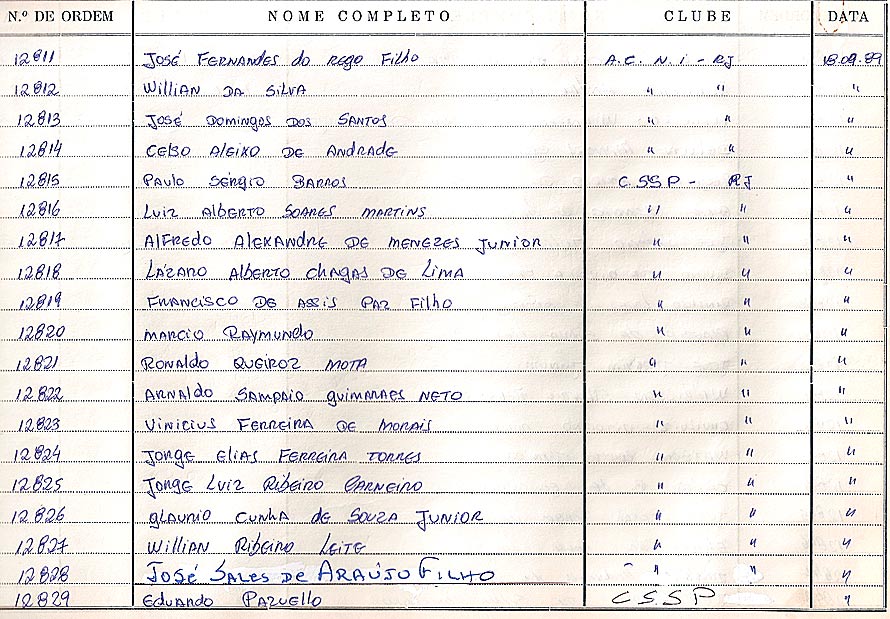 N.º DE ORDEM NOME COMPLETO CLUBE DATA
12811 José Fernandes do Rego Filho A.C.N.i - RJ 18.09.89
12812 Willian da Silva " " "
12813 José Domingos dos Santos " " "
12814 Celso Aleixo de Andrade " " "
12815 Paulo Sérgio Barros CSSP - RJ "
12816 Luiz Alberto Soares Martins " " "
12817 Alfredo Alexandre de Menezes Junior " " "
12818 Lázaro Alberto Chagas de Lima " " "
12819 Francisco de Assis Paz Filho " " "
12820 Marcio Raymundo " " "
12821 Ronaldo Queiroz Mota " " "
12822 Arnaldo Sampaio Guimaraes Neto " " "
12823 Vinicius Ferreira de Morais " " "
12824 Jorge Elias Ferreira Torres " " "
12825 Jorge Luiz Ribeiro Carneiro " " "
12826 Glaunio Cunha de Souza Junior " " "
12827 Willian Ribeiro Leite " " "
12828 José Sales de Araújo Filho " " "
12829 Eduardo Pazuello CSSP "